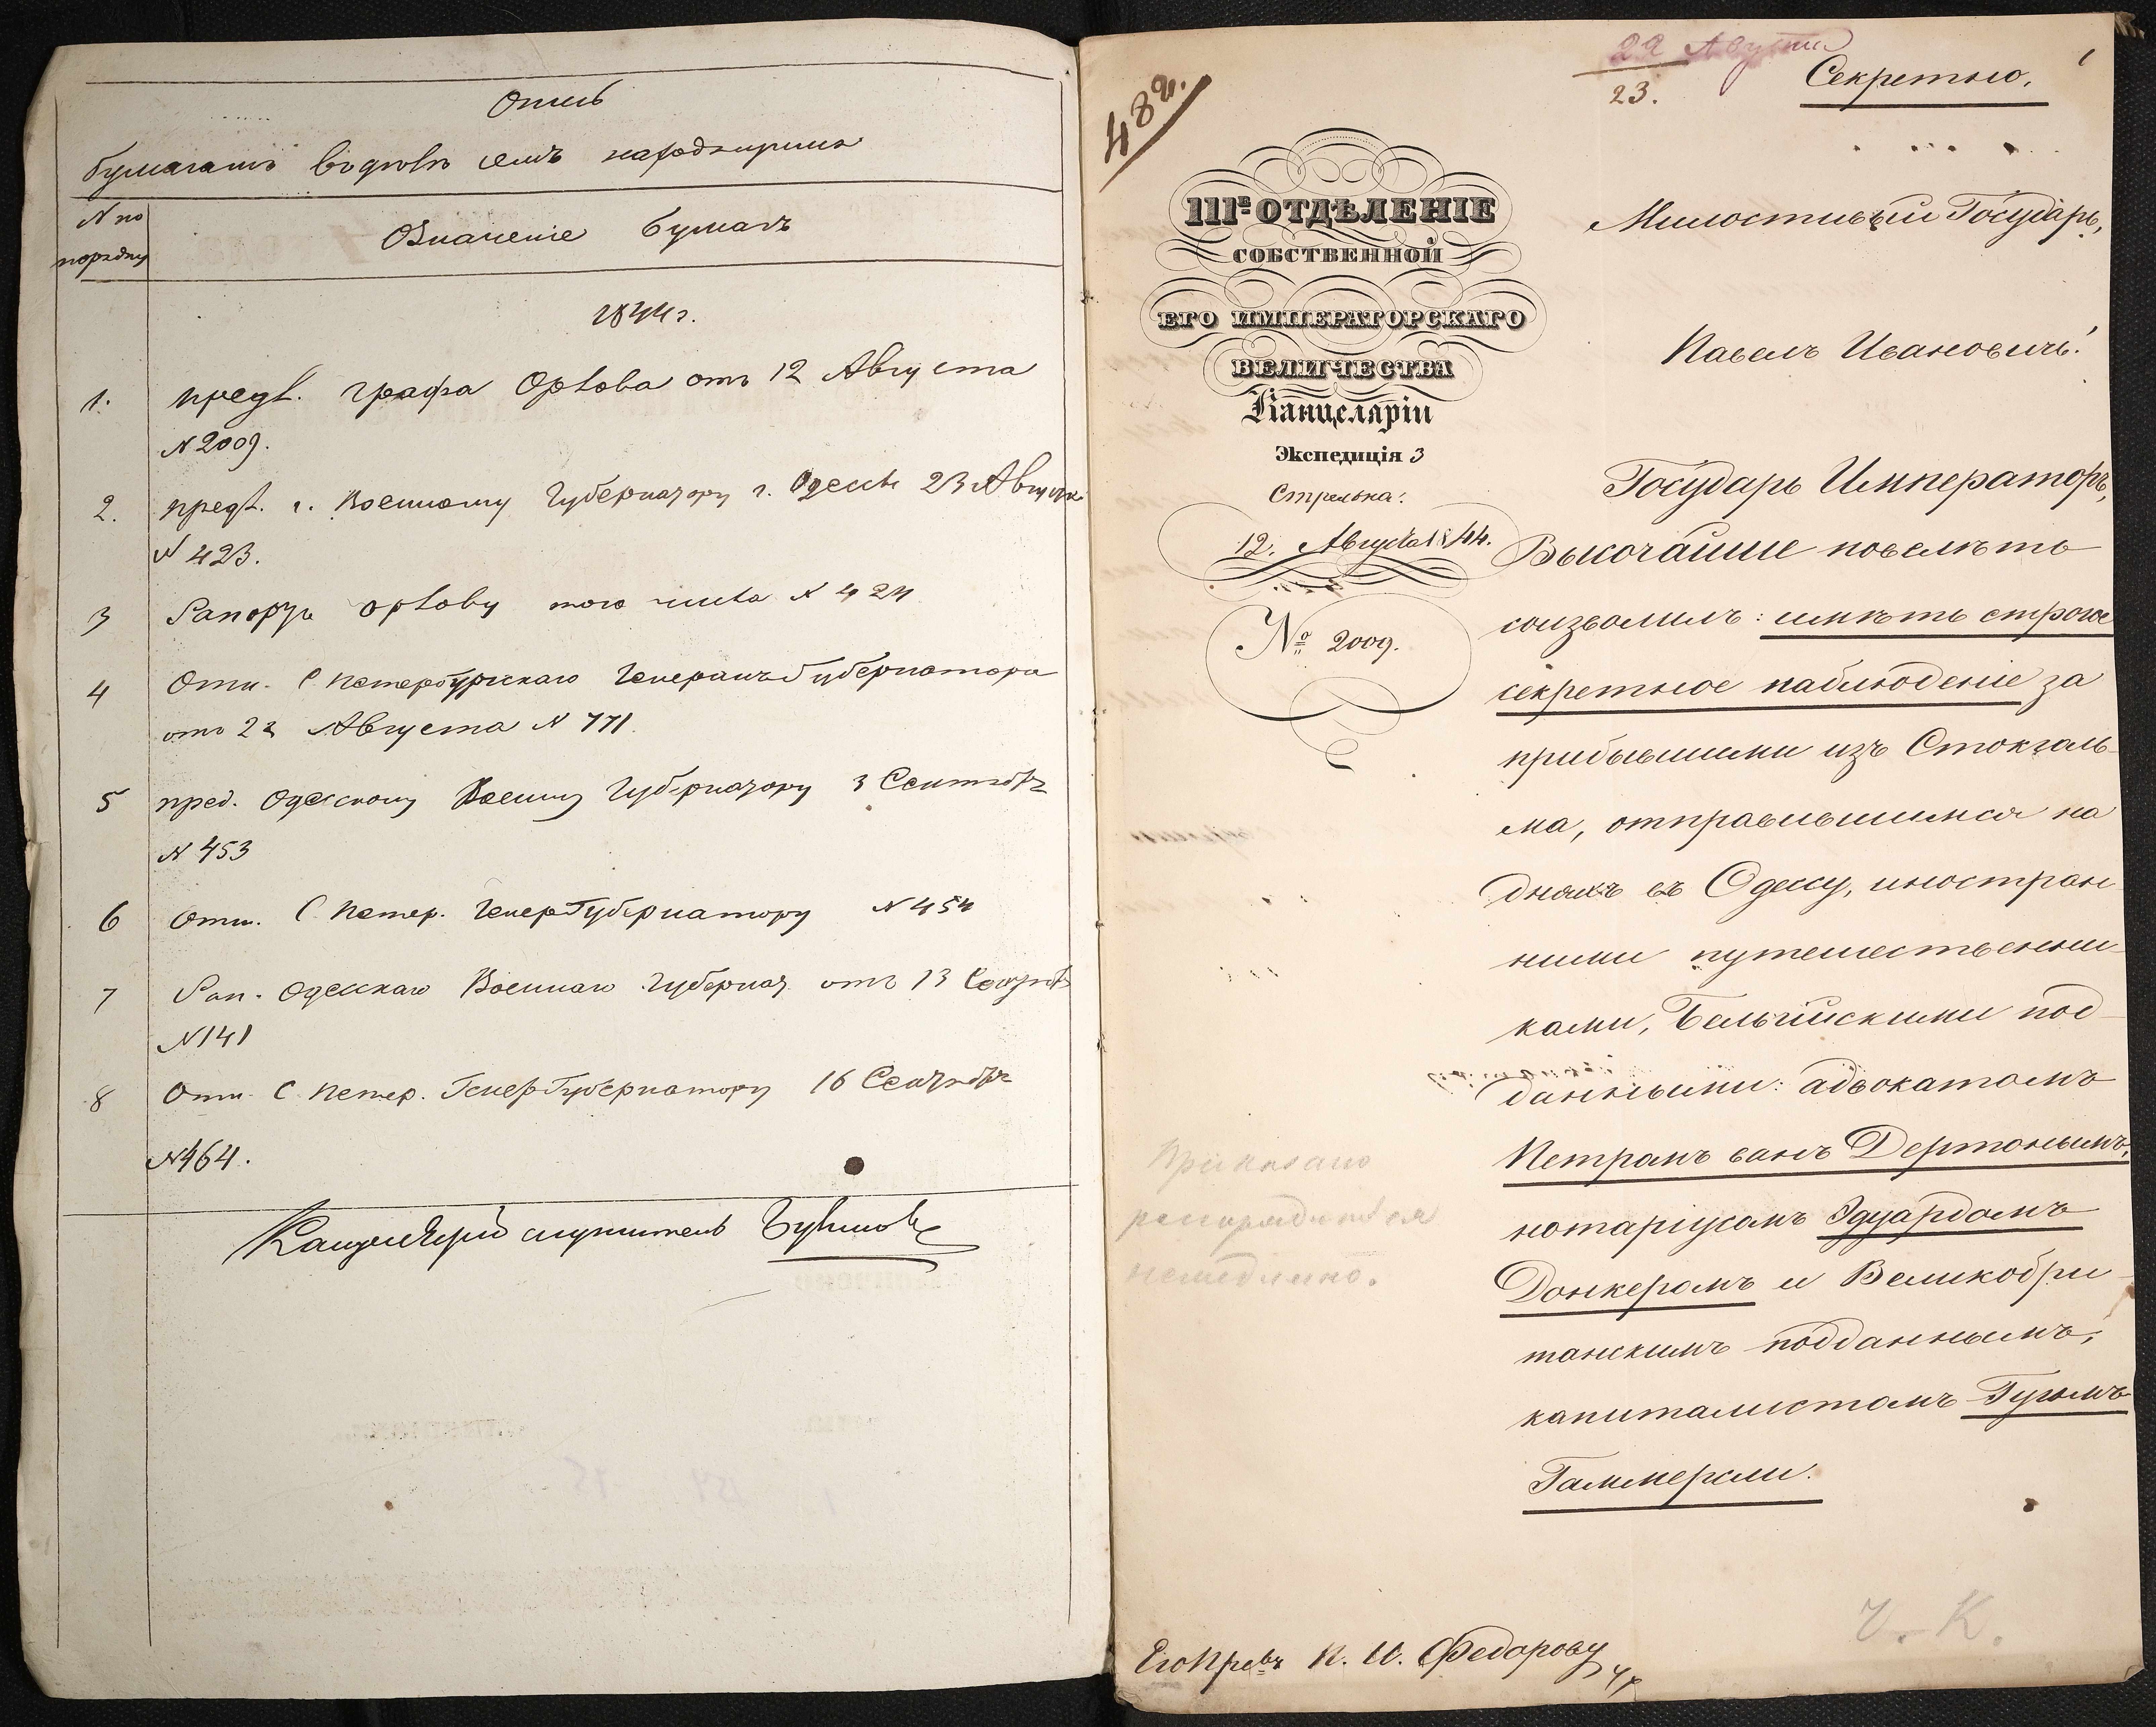 Опись
бумагамъ въ дѣлѣ семъ находящимся
N по
порядку
Означеніе бумагъ
1844 г.
1. предл. Графа Орлова отъ 12 Августа
N 2009.
2. предл. г. Военному Губернатору г. Одессы 23 Августа
N 423.
3 Рапортъ Орлову того числа N 424
4 Отн. С Петербургскаго Генералъ Губернатора
отъ 22 Августа N 771.
5 пред. Одесскому Военну Губернатору 3 Сентября
N 453
6 Отн. С. Петер. Генер Губернатору N 454
7 Рап. Одесскаго Военнаго Губернат отъ 13 Сентяб
N 141
8 Отн. С. Петер. Генер Губернатору 16 Сентября
N 464.
Канцелярскій служитель
22 Августа
23.
Секретно.
1
482.
III Е ОТДѢЛЕНІЕ
СОБСТВЕННОЙ
ЕГО ИМПЕРАТОРСКАГО
ВЕЛИЧЕСТВА
Канцеляріи
Экспедиція 3
Стрѣльна.
12. Августа 1844.
№ 2009.
Милостивый Государь,
Павелъ Ивановичъ!
Государь Императоръ,
Высочайше повелѣть
соизволилъ: имѣть строгое
секретное наблюденіе за
прибывшими изъ Стокголь-
ма, отправившимися на
дняхъ въ Одессу, иностран-
ными путешественни-
ками, Бельгійскими под-
данными: адвокатомъ
Петромъ ванъ Дертонымъ,
нотаріусомъ Эдуардомъ
Донкеромъ и Великобри-
танскимъ подданнымъ,
капиталистомъ Гугомъ
Гаммерсли.
Приказано
распорядиться
немедленно.
Его Прев. П. И. Федорову